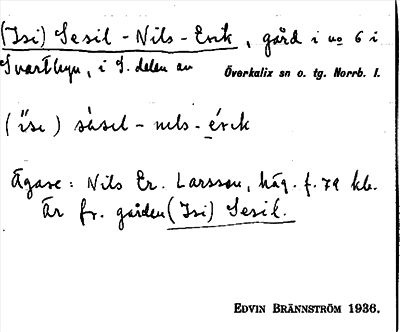 (Isi) Sesil - Nils - Erik, gård i no 6 i
Svartbyn, i S. delen av Överkalix sn o. tg. Norrb. l.
(ı̋sı) sàsıl - nıls - érık
Ägare: Nils Er. Larsson, häg. f. 79 kb.
Är fr. gården (Isi) Sesil.
EDVIN BRÄNNSTRÖM 1936.